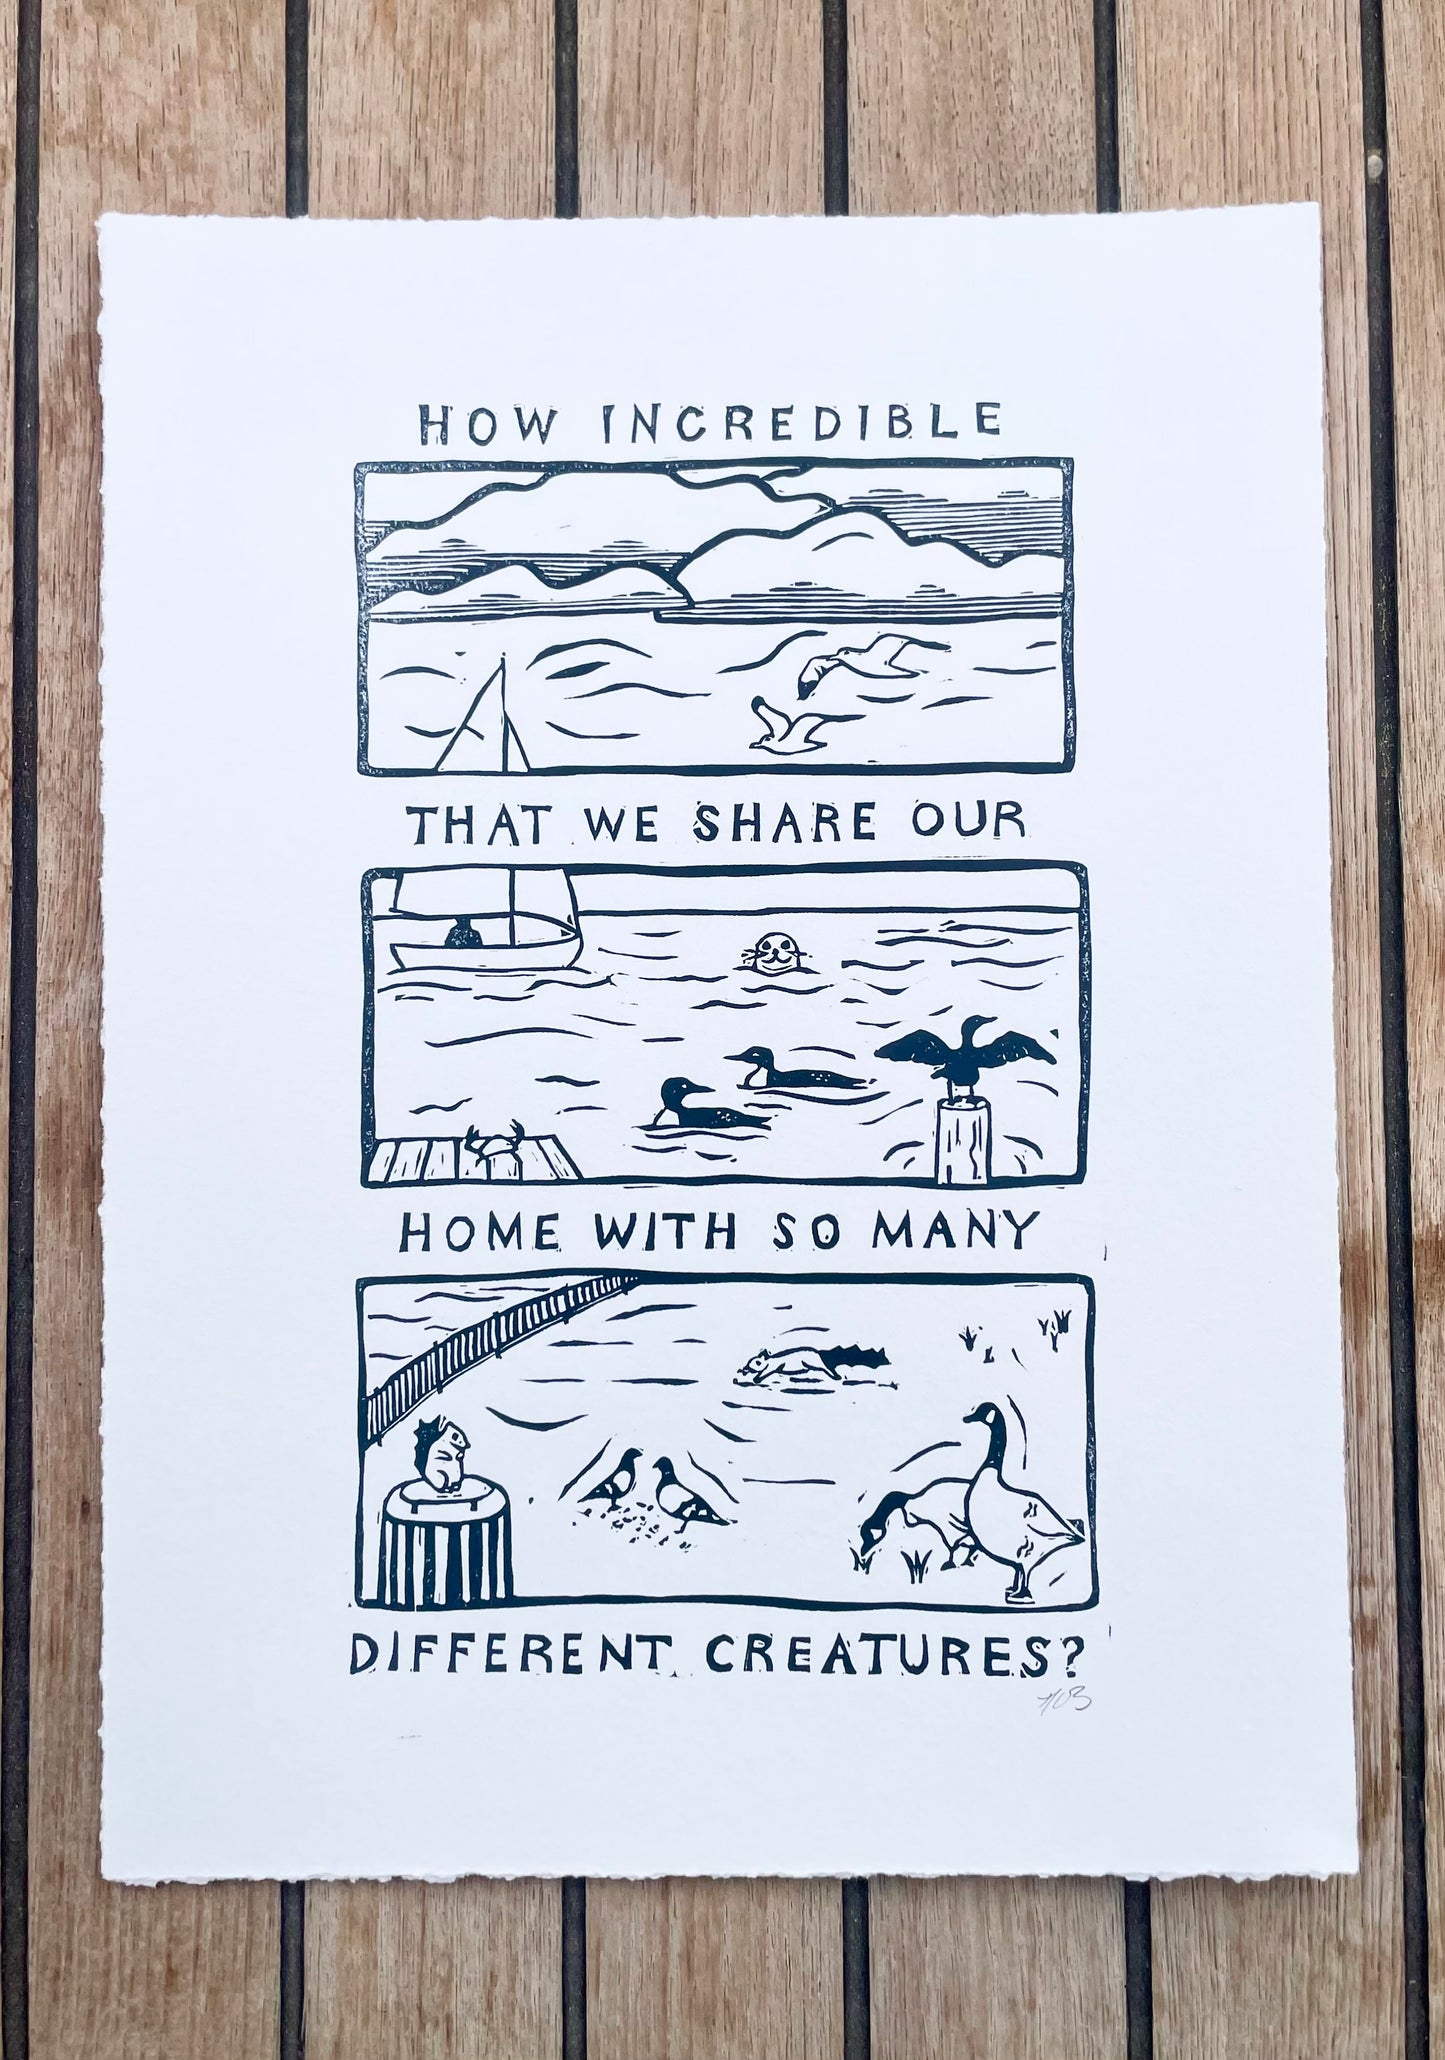 HOW INCREDIBLE
THAT WE SHARE OUR
HOME WITH SO MANY
DIFFERENT CREATURES?